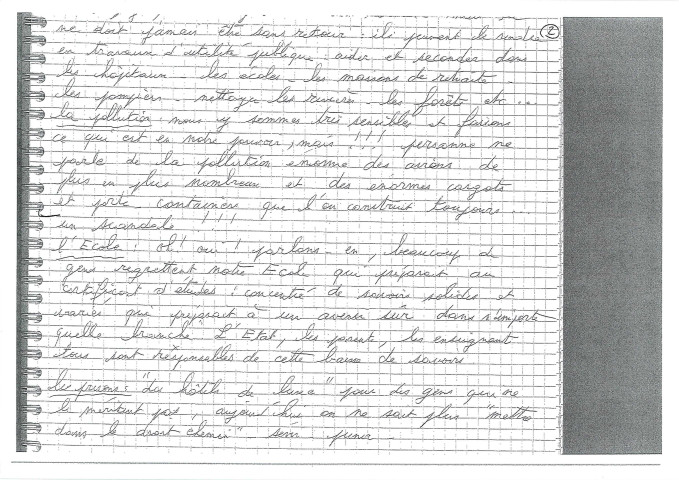 ②
ne doit jamais être sans retour : ils peuvent le rendre
en travaux d'utilité publique : aider et seconder dans
les hôpitaux - les écoles - les maisons de retraite -
les pompiers - nettoyer les rivières - les forêts etc ...
la pollution : nous y sommes très sensibles et faisons
ce qui est en notre pouvoir, mais !!! personne ne
parle de la pollution enorme des avions de
plus en plus nombreux et des énormes cargots
et porte containers que l'on construit toujours ...
un scandale !!!
l'Ecole : oh ! oui ! parlons-en, beaucoup de
gens regrettent notre Ecole qui préparait au
certificat d'études : concentré de savoirs solides et
variés qui préparait à un avenir sûr dans n'importe
quelle branche. L'Etat, les parents, les enseignants
tous sont responsables de cette baisse de savoirs
les prisons : "des hôtels de luxe" pour des gens qui ne
le méritent pas, aujourd'hui on ne sait plus "mettre
dans le droit chemin" - sévir - punir -